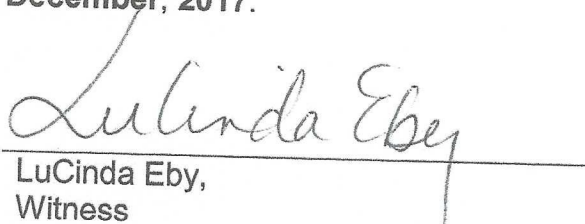 December, 2017.
LuCinda Eby
LuCinda Eby,
Witness